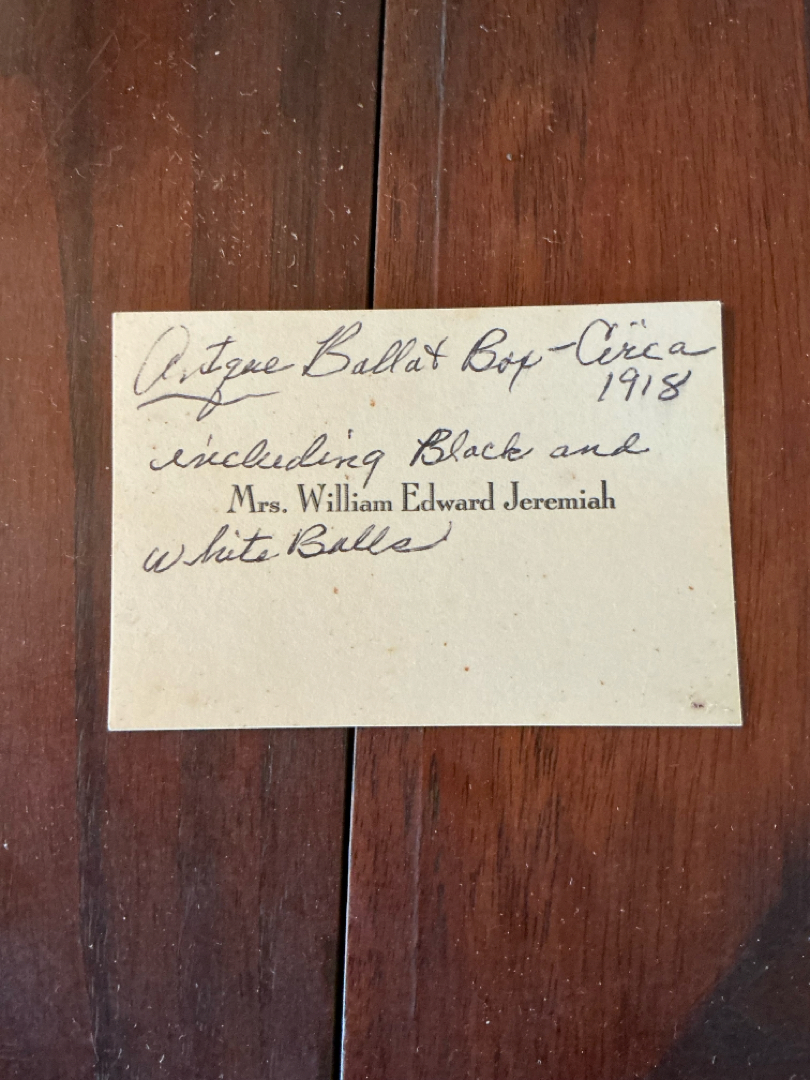 Antque Ballot Box - Circa
1918
including Black and
Mrs. William Edward Jeremiah
White Balls